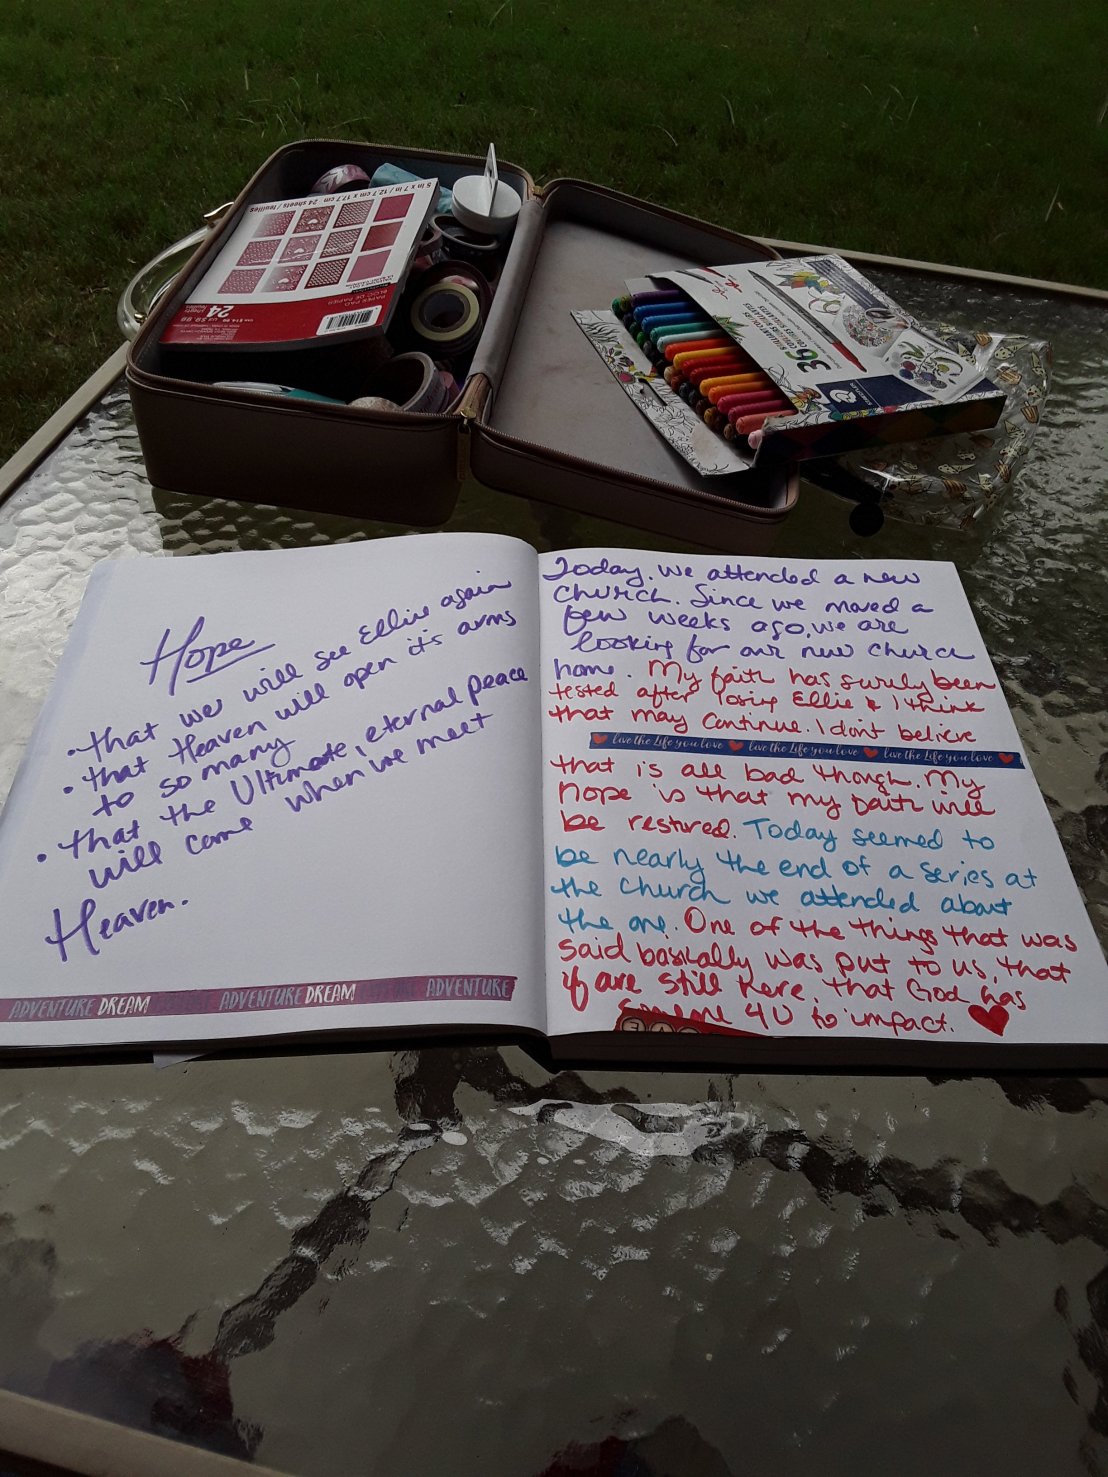 5 in x 7 in / 12.7 cm x 17.7 cm
24 sheets / feuilles
PAPER PAD
BLOC DE PAPIER
24
US $9.99
36
BRILLIANT COLOURS
STAEDTLER
Hope
• that we will see Ellie again
• that Heaven will open it's arms
to so many
• that the Ultimate, eternal peace
will come when we meet
Heaven.
ADVENTURE DREAM ADVENTURE DREAM ADVENTURE
Today, we attended a new
church. Since we moved a
few weeks ago, we are
looking for our new church
home. My faith has surely been
tested after losing Ellie & I think
that may continue. I don't believe
live the Life you love live the Life you love live the Life you love
that is all bad though. My
hope is that my faith will
be restored. Today seemed to
be nearly the end of a series at
the church we attended about
the one. One of the things that was
said basically was put to us, that
if are still here, that God has
someone 4U to impact.